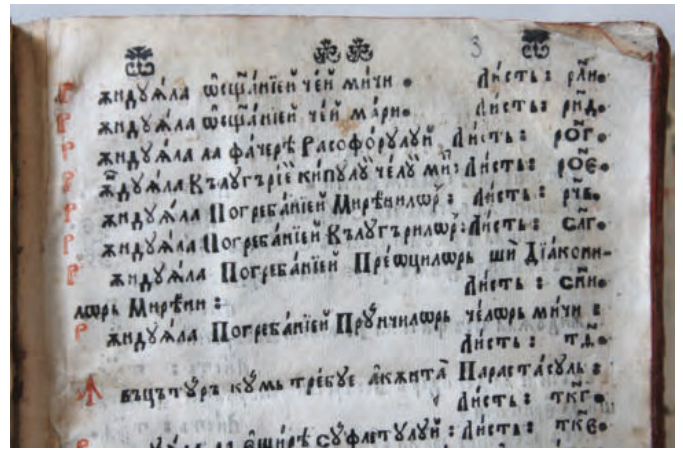 3
Рѫндꙋѧ́ла ѡ҆сщ҃а́нїей че́й ми́чи. Ли́сть: рл҃и.
Рѫндꙋѧ́ла ѡ҆сщ҃а́нїей че́й ма́ри. Ли́сть: рн҃д.
Рѫндꙋѧ́ла ла фа́черѣ Расофо́рꙋлꙋй Ли́сть: ро҃г.
Рѫндꙋѧ́ла Кълꙋгърїей кипꙋлꙋй че́лꙋй Ли́сть: ро҃є.
Рѫндꙋѧ́ла Погреба́нїей Мирѣ́нилѡр: Ли́сть: рч҃в.
Рѫндꙋѧ́ла Погреба́нїей Кълꙋгърилѡр: Ли́сть: сл҃г.
Рѫндꙋѧ́ла Погреба́нїей Прео́цилѡрь шѝ Дїа́кони-
лѡрь Мирѣ́ни: Ли́сть: сн҃и.
Рѫндꙋѧ́ла Погреба́нїей Прꙋ́нчилѡрь че́лѡрь ми́чи:
Ли́сть: т҃д.
Ꙟвъцътꙋ́ръ кꙋ́мь тре́бꙋе а҆кѫнта̀ Параста́сꙋль:
Ли́сть: тк҃г.
єширѣ сꙋ́флетꙋлꙋй: Ли́сть: тк҃є.